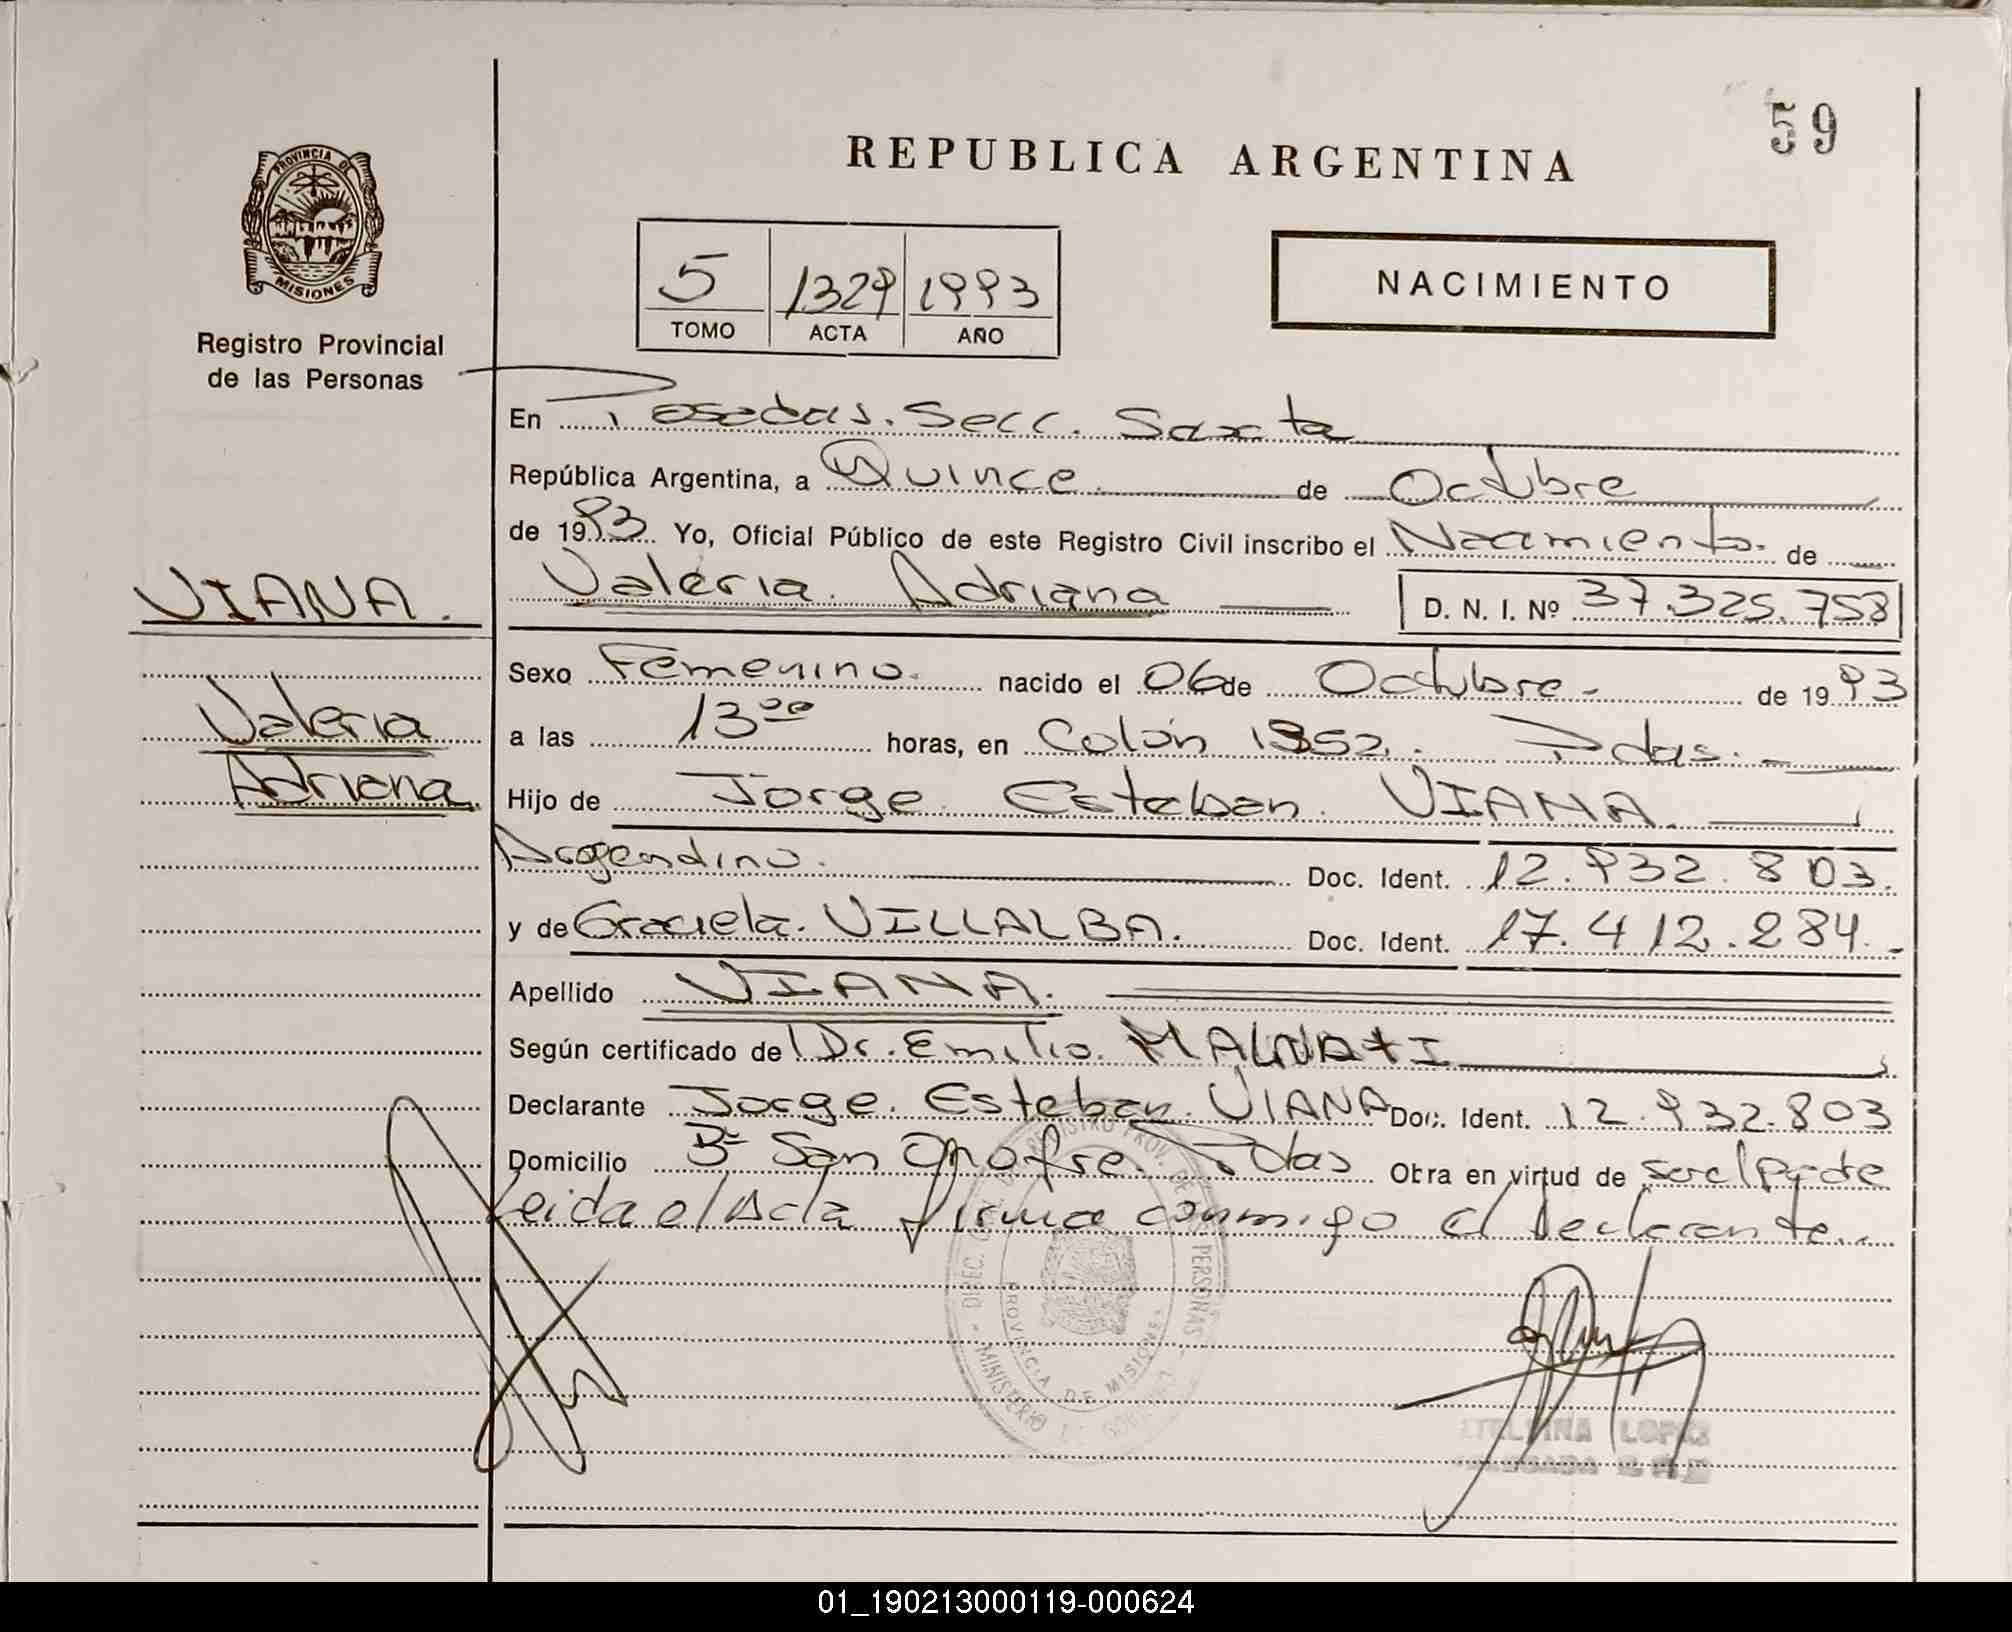 59
REPUBLICA ARGENTINA
PROVINCIA DE
MISIONES
Registro Provincial
de las Personas
5 1329 1993
TOMO ACTA AÑO
NACIMIENTO
En Posadas. Secc. Sexta
República Argentina, a Quince de Octubre
de 1993. Yo, Oficial Público de este Registro Civil inscribo el Nacimiento. de
Valeria. Adriana D. N. I. Nº 37.325.758
VIANA.
Valeria
Adriana
Sexo Femenino. nacido el 06 de Octubre. de 1993
a las 13 00 horas, en Colón 1352. Pdas.
Hijo de Jorge Esteban VIANA
Argentino. Doc. Ident. 12.932.803.
y de Graciela. VILLALBA. Doc. Ident. 17.412.284.
Apellido VIANA.
Según certificado de Dr. Emilio. MALNATI
Declarante Jorge. Esteban. VIANA Doc. Ident. 12.932.803
Domicilio Bº San Onofre. Pdas Obra en virtud de ser el padre
Leida el Acta firma conmigo el declarante.
DIREC. REGISTRO PROV. DE PERSONAS
MINISTERIO DE
PROVINCIA DE MISIONES
LOPEZ
01_190213000119-000624